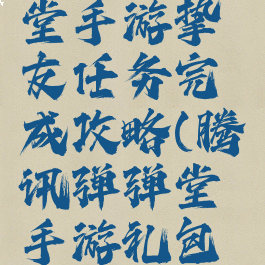 堂手游挚
友任务完
成攻略(腾
讯弹弹堂
手游礼包